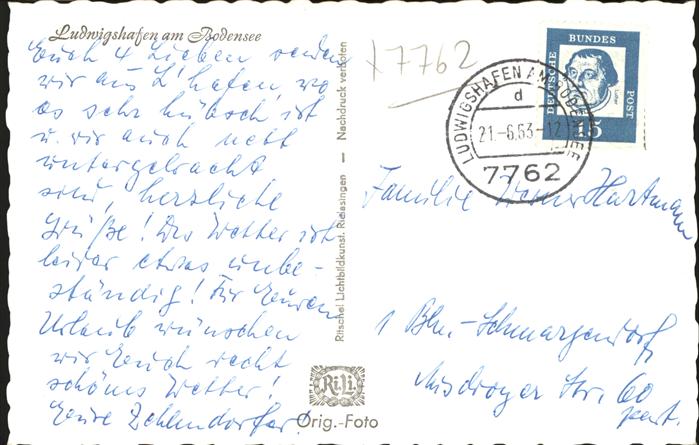 Ludwigshafen am Bodensee
Euch 4 Lieben senden
wir aus L'hafen, wo
es sehr hübsch ist
u. wir auch nett
untergebracht
sind, herzliche
Grüße! Das Wetter ist
leider etwas unbe-
ständig! Für Euren
Urlaub wünschen
wir Euch recht
schönes Wetter!
Eure Zehlendorfer
Ritschel Lichtbildkunst. Rielasingen — Nachdruck verboten
Ri.Li.
Orig.-Foto
x7762
LUDWIGSHAFEN AM BODENSEE
d
21.-6.63-12
7762
DEUTSCHE BUNDES POST
Luther
15
Familie Werner Hartmann
1 Bln.-Schmargendorf
Misdroyer Str. 60
part.